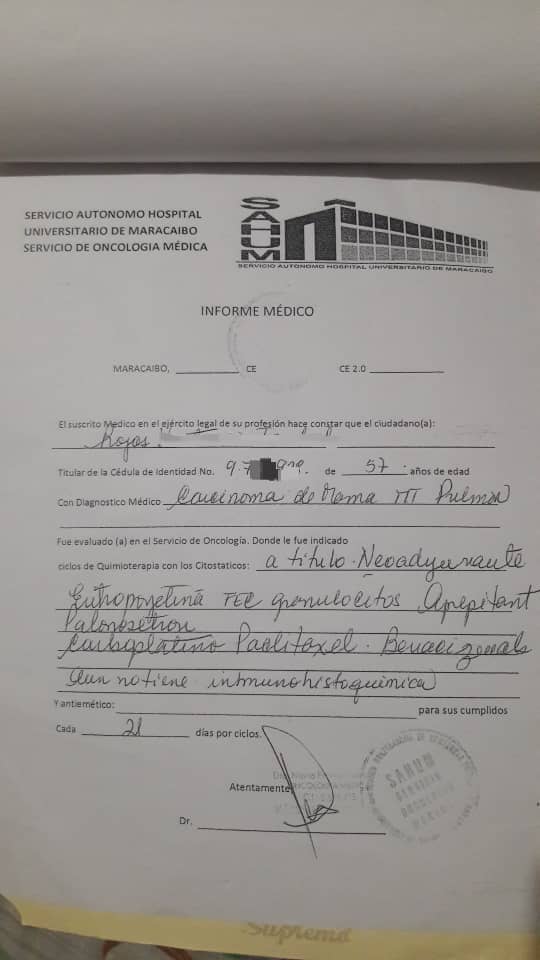 SERVICIO AUTONOMO HOSPITAL
UNIVERSITARIO DE MARACAIBO
SERVICIO DE ONCOLOGIA MÉDICA
SAHUM
SERVICIO AUTONOMO HOSPITAL UNIVERSITARIO DE MARACAIBO
INFORME MÉDICO
MARACAIBO, CE CE 2.0
El suscrito Medico en el ejército legal de su profesión hace constar que el ciudadano(a):
Rojas
Titular de la Cédula de Identidad No. 9.7 de 57 años de edad
Con Diagnostico Médico Carcinoma de Mama Pulmon
Fue evaluado (a) en el Servicio de Oncología. Donde le fue indicado
ciclos de Quimioterapia con los Citostaticos: a titulo Neoadyuvante
FEC granulocitos Apepitant
Palonosetron
Carboplatino Paclitaxel
Aun no tiene inmunohistoquimica
Y antiemético: para sus cumplidos
Cada 21 días por ciclos.
Atentamente
Dr.
SAHUM
SERVICIO
Suprema